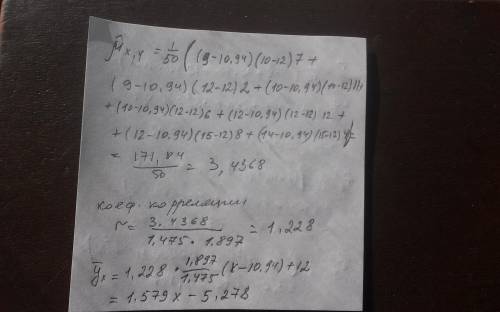 μ̂ₓ,ᵧ = 1/50 ( (9-10,94)(10-12)7 +
(9-10,94)(12-12)2 + (10-10,94)(10-12)11
+ (10-10,94)(12-12)6 + (12-10,94)(12-12)12 +
+ (12-10,94)(15-12)8 + (14-10,94)(15-12)4)=
= 171,84/50 = 3,4368
коеф. корреляции
r = 3.4368/1,475 · 1.897 = 1,228
ȳₓ = 1,228 · 1,897/1,475 (x-10,94)+12
= 1.579x - 5,278